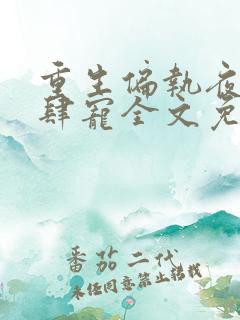 重生偏執夜
肆寵全文免
番茄二代
未经同意禁止转载